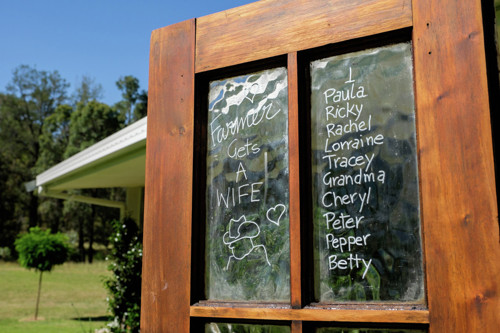 Farmer
Gets
A
WIFE
1
Paula
Ricky
Rachel
Lorraine
Tracey
Grandma
Cheryl
Peter
Pepper
Betty